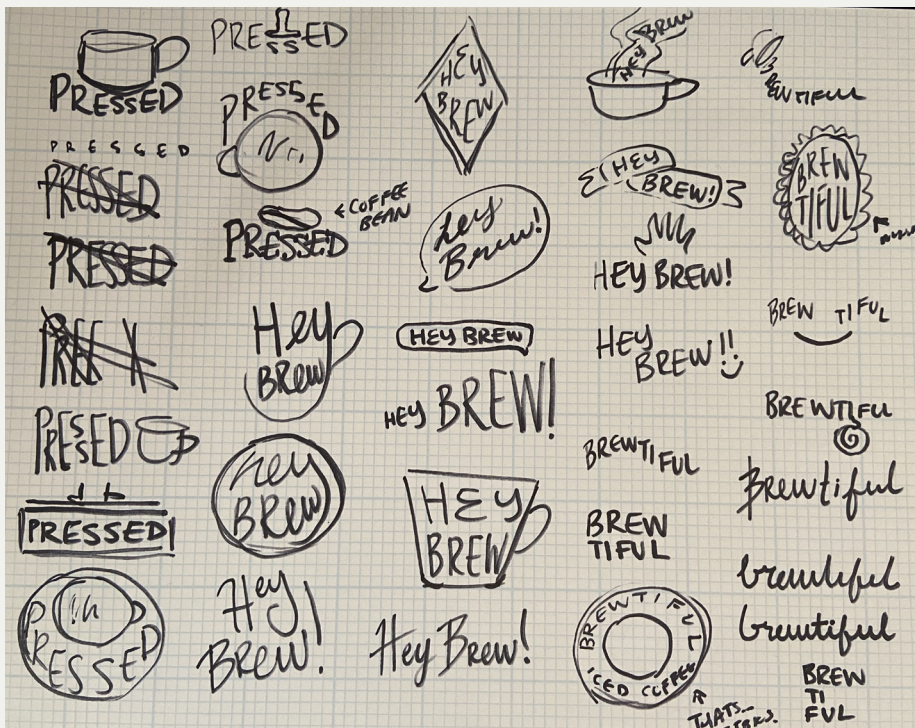 PRESSED
P R E S S E D
PRESSED
PRESSED
PRESSED
PRESSED
PRESSED
PRE SS ED
PRESSED
← COFFEE
BEAN
PRESSED
Hey
BREW
Hey
BREW
Hey
BREW!
HEY
BREW
Hey
Brew!
HEY BREW
HEY BREW!
HEY
BREW
Hey Brew!
HEY BREW
HEY
BREW!
HEY BREW!
HEY
BREW!!
BREWTIFUL
BREW
TIFUL
BREWTIFUL
ICED COFFEE
THATS...
BREWTIFUL
BREW
TIFUL
BREW TIFUL
BREWTIFU
Brewtiful
brewtiful
brewtiful
BREW
TI
FUL